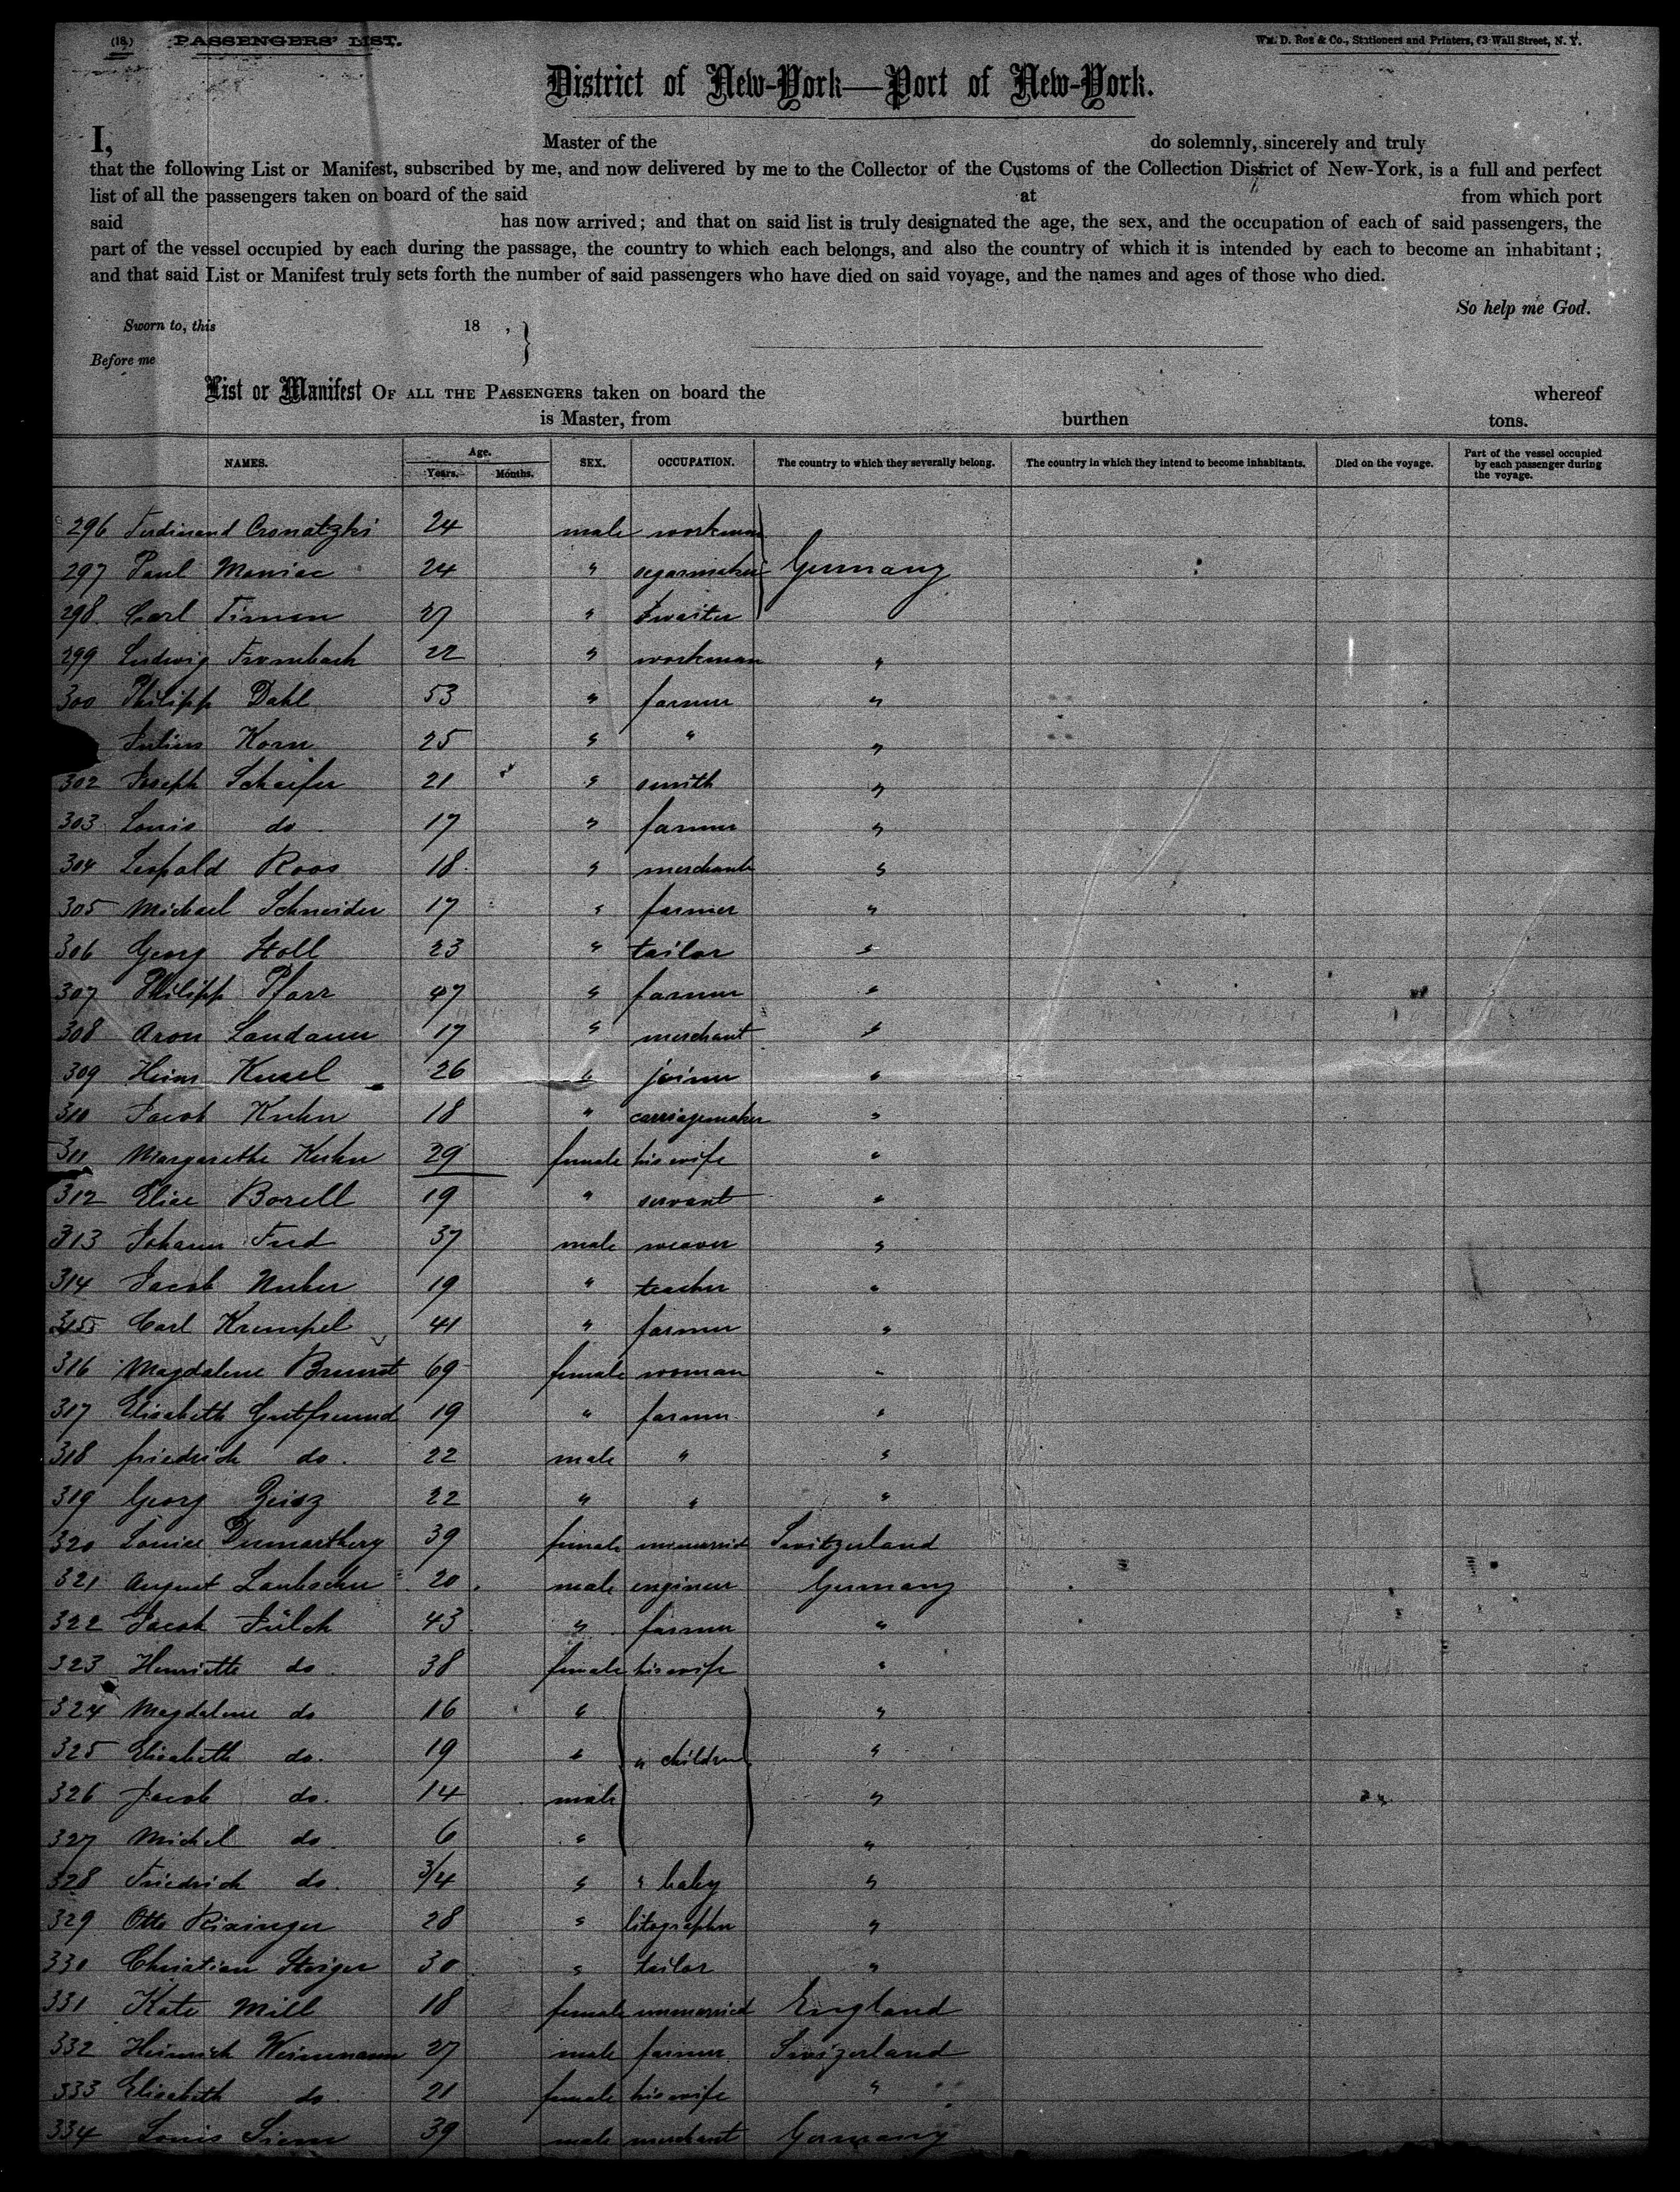 (18) PASSENGERS' LIST. Wm. D. Roe & Co., Stationers and Printers, 63 Wall Street, N. Y.
District of New-York—Port of New-York.
I, Master of the do solemnly, sincerely and truly
that the following List or Manifest, subscribed by me, and now delivered by me to the Collector of the Customs of the Collection District of New-York, is a full and perfect
list of all the passengers taken on board of the said at from which port
said has now arrived; and that on said list is truly designated the age, the sex, and the occupation of each of said passengers, the
part of the vessel occupied by each during the passage, the country to which each belongs, and also the country of which it is intended by each to become an inhabitant;
and that said List or Manifest truly sets forth the number of said passengers who have died on said voyage, and the names and ages of those who died.
So help me God.
Sworn to, this 18 ,
Before me
List or Manifest OF ALL THE PASSENGERS taken on board the whereof
is Master, from burthen tons.
NAMES. Age. Years. Months. SEX. OCCUPATION. The country to which they severally belong. The country in which they intend to become inhabitants. Died on the voyage. Part of the vessel occupied by each passenger during the voyage.
296 Ferdinand 24 male workman
297 Paul Maniac 24 " segarmaker Germany
298 Carl Timen 27 " waiter
299 Ludwig Frombach 22 " workman "
300 Philipp Dahl 53 " farmer "
Julius Korn 25 " " "
302 Joseph Schaifer 21 " smith "
303 Louis do 17 " farmer "
304 Leopold Roos 18 " merchant "
305 Michael Schneider 17 " farmer "
306 Georg Stoll 23 " tailor "
307 Philipp Pfarr 47 " farmer "
308 Aron Landauer 17 " merchant "
309 Heinr. Kusel 26 " joiner "
310 Jacob Kuhn 18 " carriagemaker "
311 Margarethe Kuhn 29 female his wife "
312 Elise Borell 19 " servant "
313 Johann Fred 37 male weaver "
314 Jacob Huber 19 " teacher "
315 Carl Krempel 41 " farmer "
316 Magdalene 69 female woman "
317 Elisabeth Gutfreund 19 " farmer "
318 friedrich do. 22 male " "
319 Georg Geisz 22 " " "
320 Louise 39 female unmarried Switzerland
321 August Laubscher 20 male engineer Germany
322 Jacob Jülch 43 " farmer "
323 Henriette do 38 female his wife "
324 Magdalene do 16 " "
325 Elisabeth do. 19 " " children "
326 Jacob do. 14 male "
327 Michel do. 6 " "
328 Friedrich do. 3/4 " " baby "
329 Otto Rixinger 28 " litographer "
330 Christian Steiger 30 " tailor "
331 Kate Mill 18 female unmarried England
332 Heinrich Weinmann 27 male farmer Swizerland
333 Elisabeth do. 21 female his wife "
334 Louis Siem 39 male merchant Germany